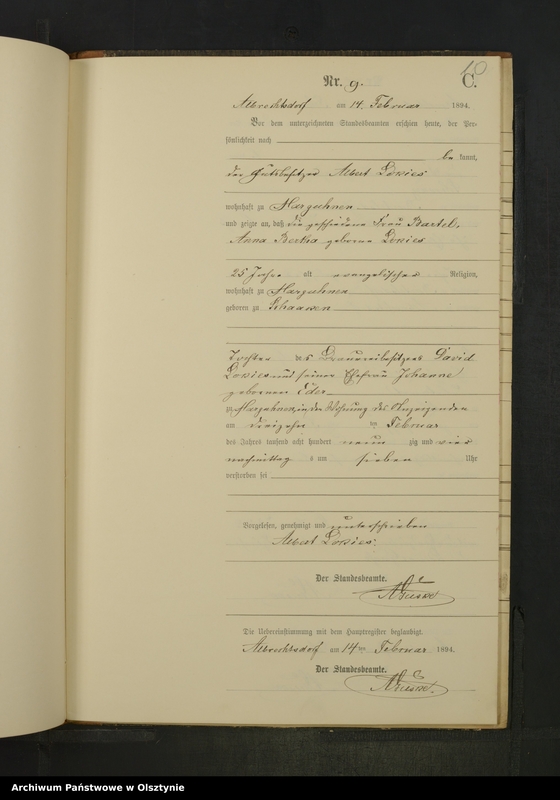 10
Nr. 9. C.
Albrechtsdorf am 14. Februar 1894.
Vor dem unterzeichneten Standesbeamten erschien heute, der Per-
sönlichkeit nach
be kannt,
der Gutsbesitzer Albert
wohnhaft zu
und zeigte an, daß die geschiedene Frau Bartel,
Anna Bertha geborene
25 Jahre alt evangelischer Religion,
wohnhaft zu
geboren zu
Tochter des Brauereibesitzers David
und seiner Ehefrau Johanne
geborenen Eder
zu in der Wohnung des Anzeigenden
am dreizehn ten Februar
des Jahres tausend acht hundert neun zig und vier
nachmittag s um sieben Uhr
verstorben sei
Vorgelesen, genehmigt und unterschrieben
Albert
Der Standesbeamte.
Die Uebereinstimmung mit dem Hauptregister beglaubigt.
Albrechtsdorf am 14ten Februar 1894.
Der Standesbeamte.
Archiwum Państwowe w Olsztynie